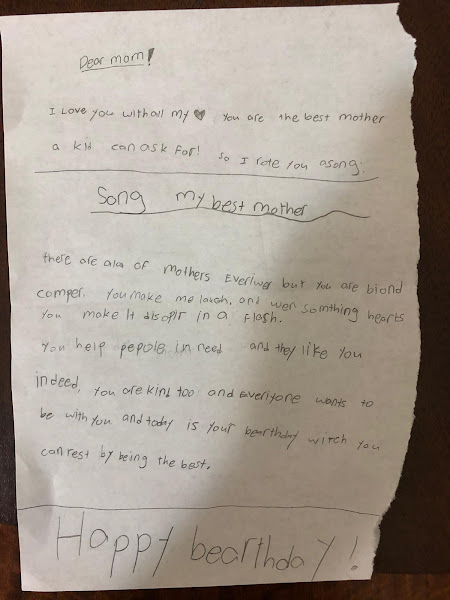 Dear mom!
I Love you withall my ♥ You are the best mother
a kid can ask for! So I rote you asong:
Song my best mother
there are alaa of mothers Everiwer but you are biond
comper. You make me laugh, and wen somthing hearts
you make it disopir in a flash.
You help pepole in need and they like you
indeed, you are kind too and Everiyone wants to
be with you and today is your bearthday witch you
can rest by being the best.
Happy bearthday!